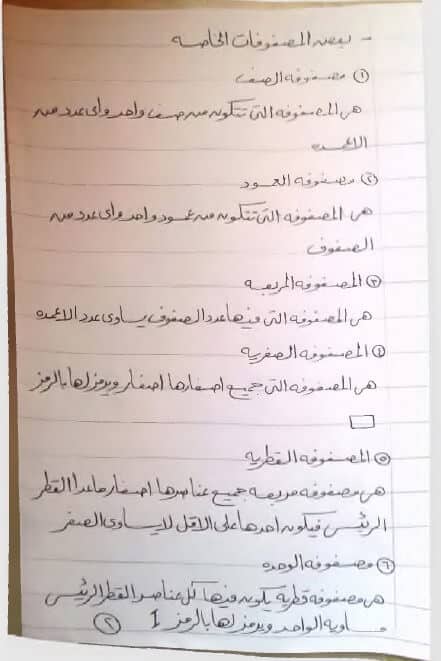 - بعض المصفوفات الخاصه
① مصفوفه الصف
هى المصفوفه التى تتكون من صف واحد واى عدد من
الاعمده
② مصفوفه العمود
هى المصفوفه التى تتكون من عمود واحد واى عدد من
الصفوف
③ المصفوفه المربعه
هى المصفوفه التى فيها عدد الصفوف يساوى عدد الاعمده
④ المصفوفه الصفريه
هى المصفوفه التى جميع اصفارها اصفار ويرمز لها بالرمز
□
⑤ المصفوفه القطريه
هى مصفوفه مربعه جميع عناصرها اصفار ماعدا القطر
الرئيسى فيكون احدها على الاقل لايساوى الصفر
⑥ مصفوفه الوحده
هى مصفوفه قطريه يكون فيها كل عناصر القطر الرئيسى
مساويه الواحد ويرمز لها بالرمز I ②